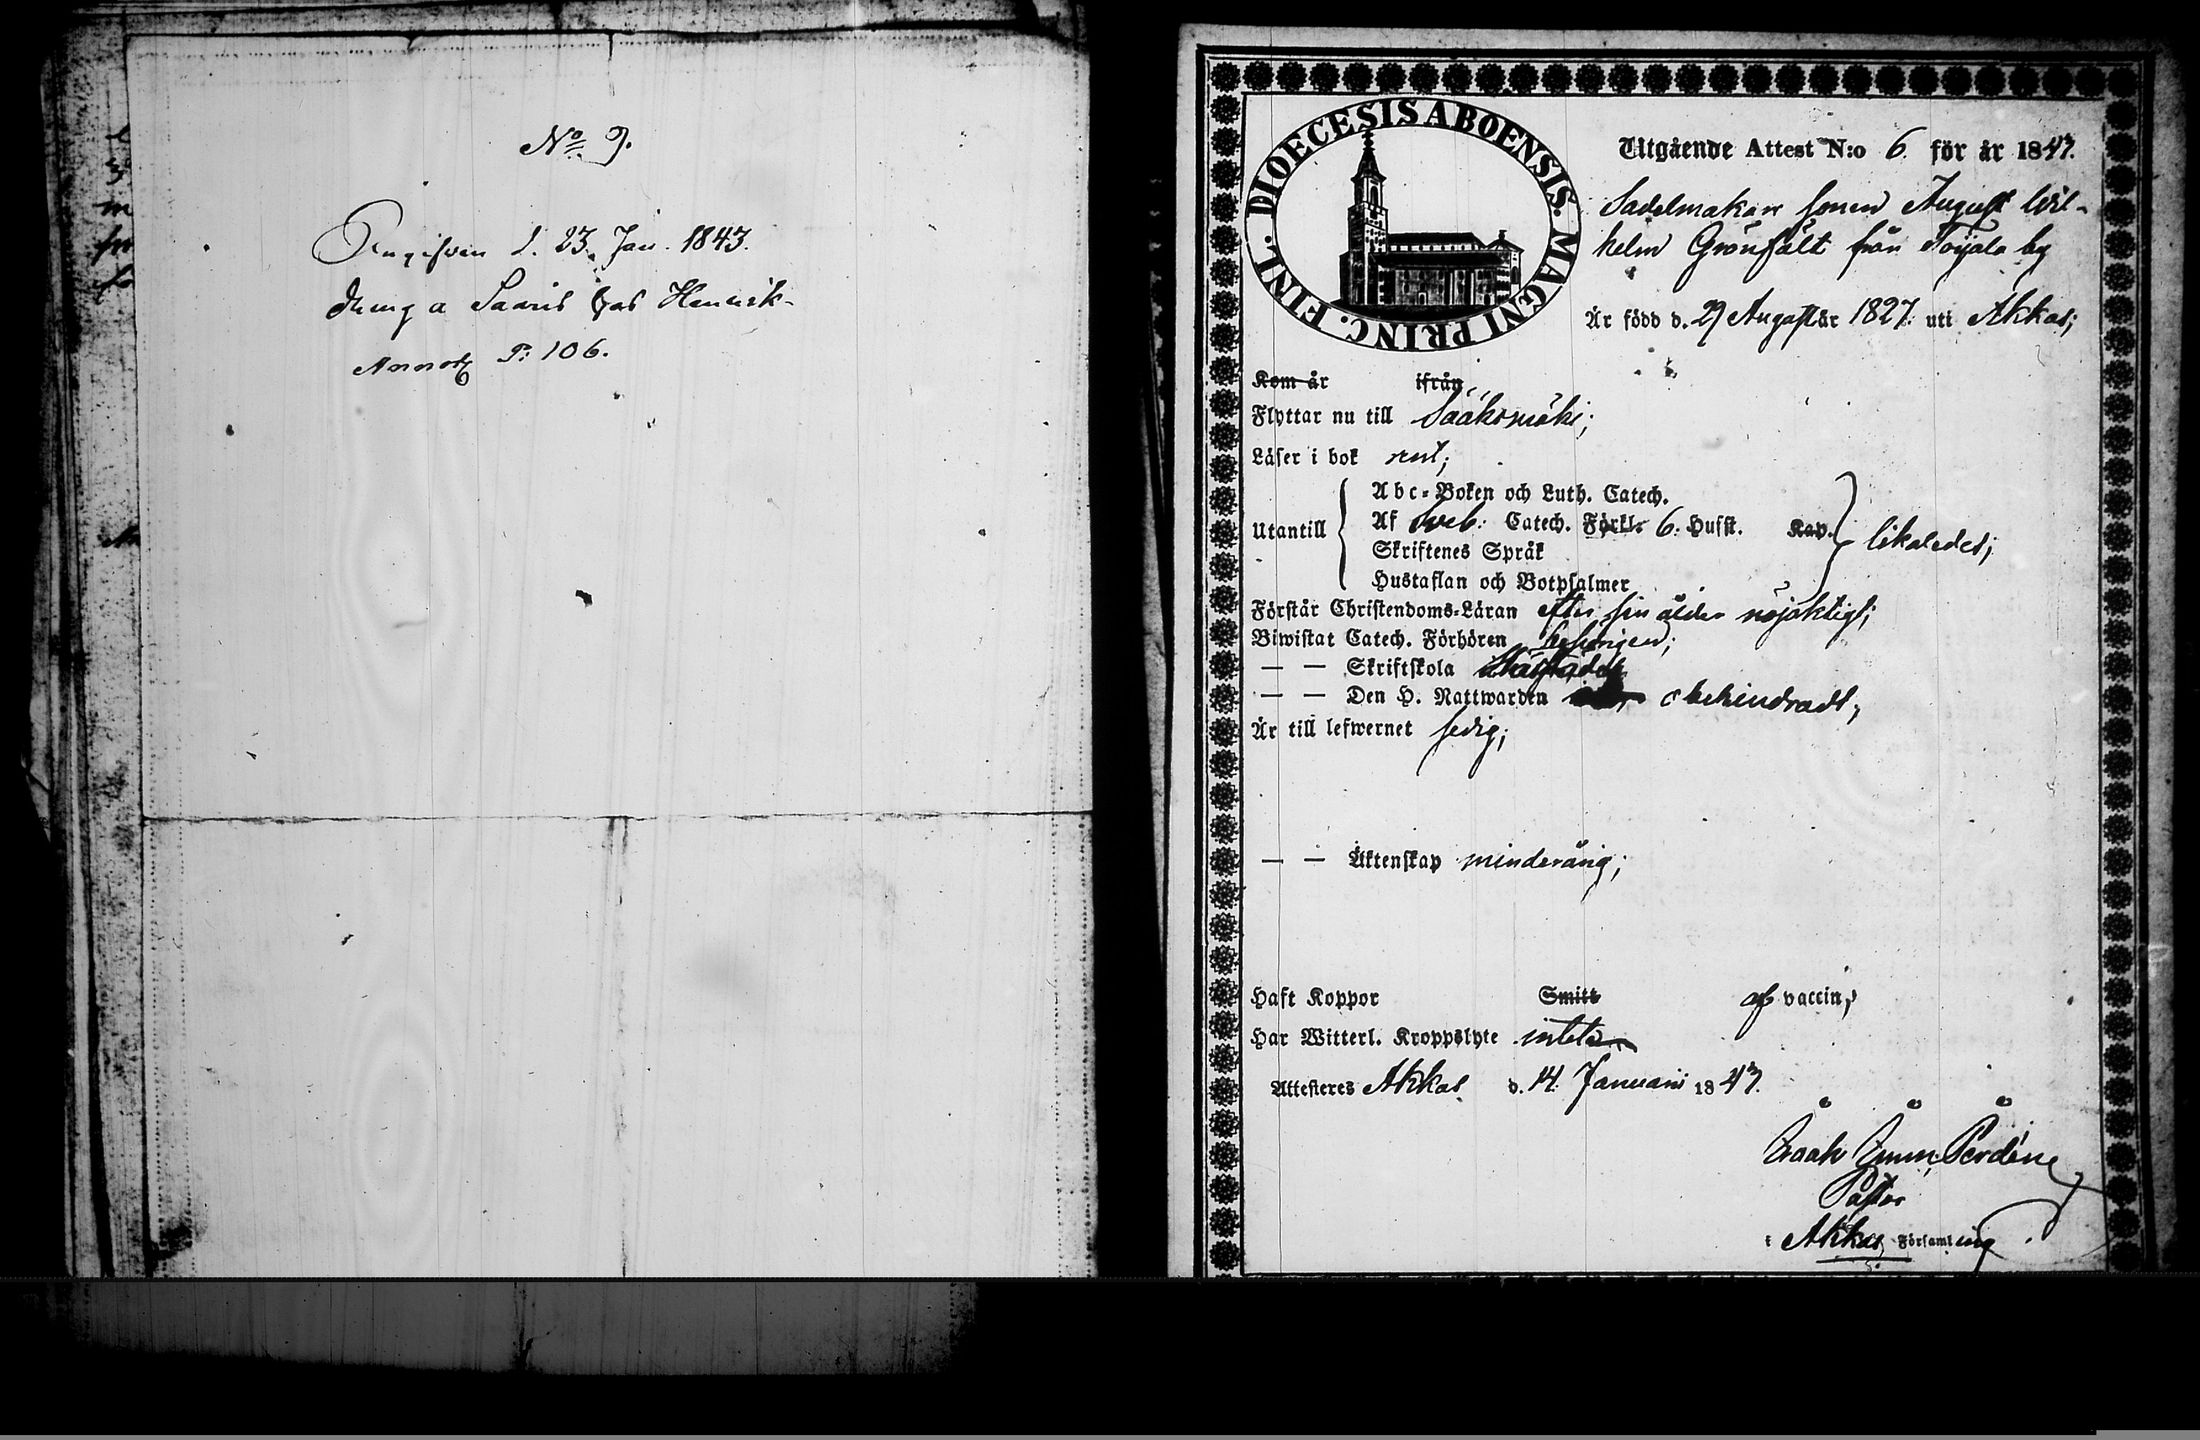 No 9.
Angifven d. 23. Jan. 1843.
dräng a Saaris hos Henrik-
Annot P: 106.
DIOECESIS ABOENSIS. MAGNI PRINC. FINL.
Utgående Attest N:o 6. för år 1843.
Sadelmakare sonen August Wil-
helm Grönfält från Toijala by
Är född d. 29 August år 1827. uti Akkas;
Kom år ifrån
Flyttar nu till Sääksmäki;
Läser i bok rent;
Abc-Boken och Luth. Catech.
Utantill Af Sveb: Catech. Förkl. 6. Husst. Kap. likaledes;
Skriftenes Språk
Hustaflan och Botpsalmer
Förstår Christendoms-Läran efter sin ålder nöjaktigt;
Biwistat Catech. Förhören
— — Skriftskola
— — Den H. Nattwarden obehindradt;
Är till lefwernet ledig;
— — Äktenskap minderårig;
Haft Koppor Smitt af vaccin;
Har Witterl. Kroppslyte intet
Attesteres Akkas d. 14. Januarii 1843.
Pastor
i Akkas Församling.